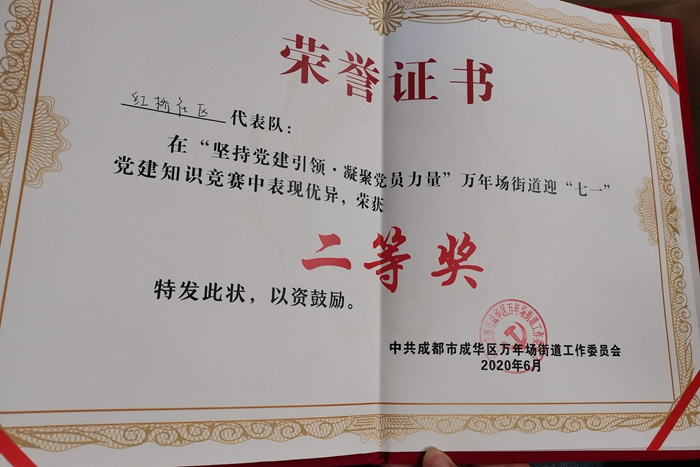 荣誉证书
红桥社区 代表队：
在“坚持党建引领·凝聚党员力量”万年场街道迎“七一”
党建知识竞赛中表现优异，荣获
二等奖
特发此状，以资鼓励。
中共成都市成华区万年场街道工作委员会
2020年6月